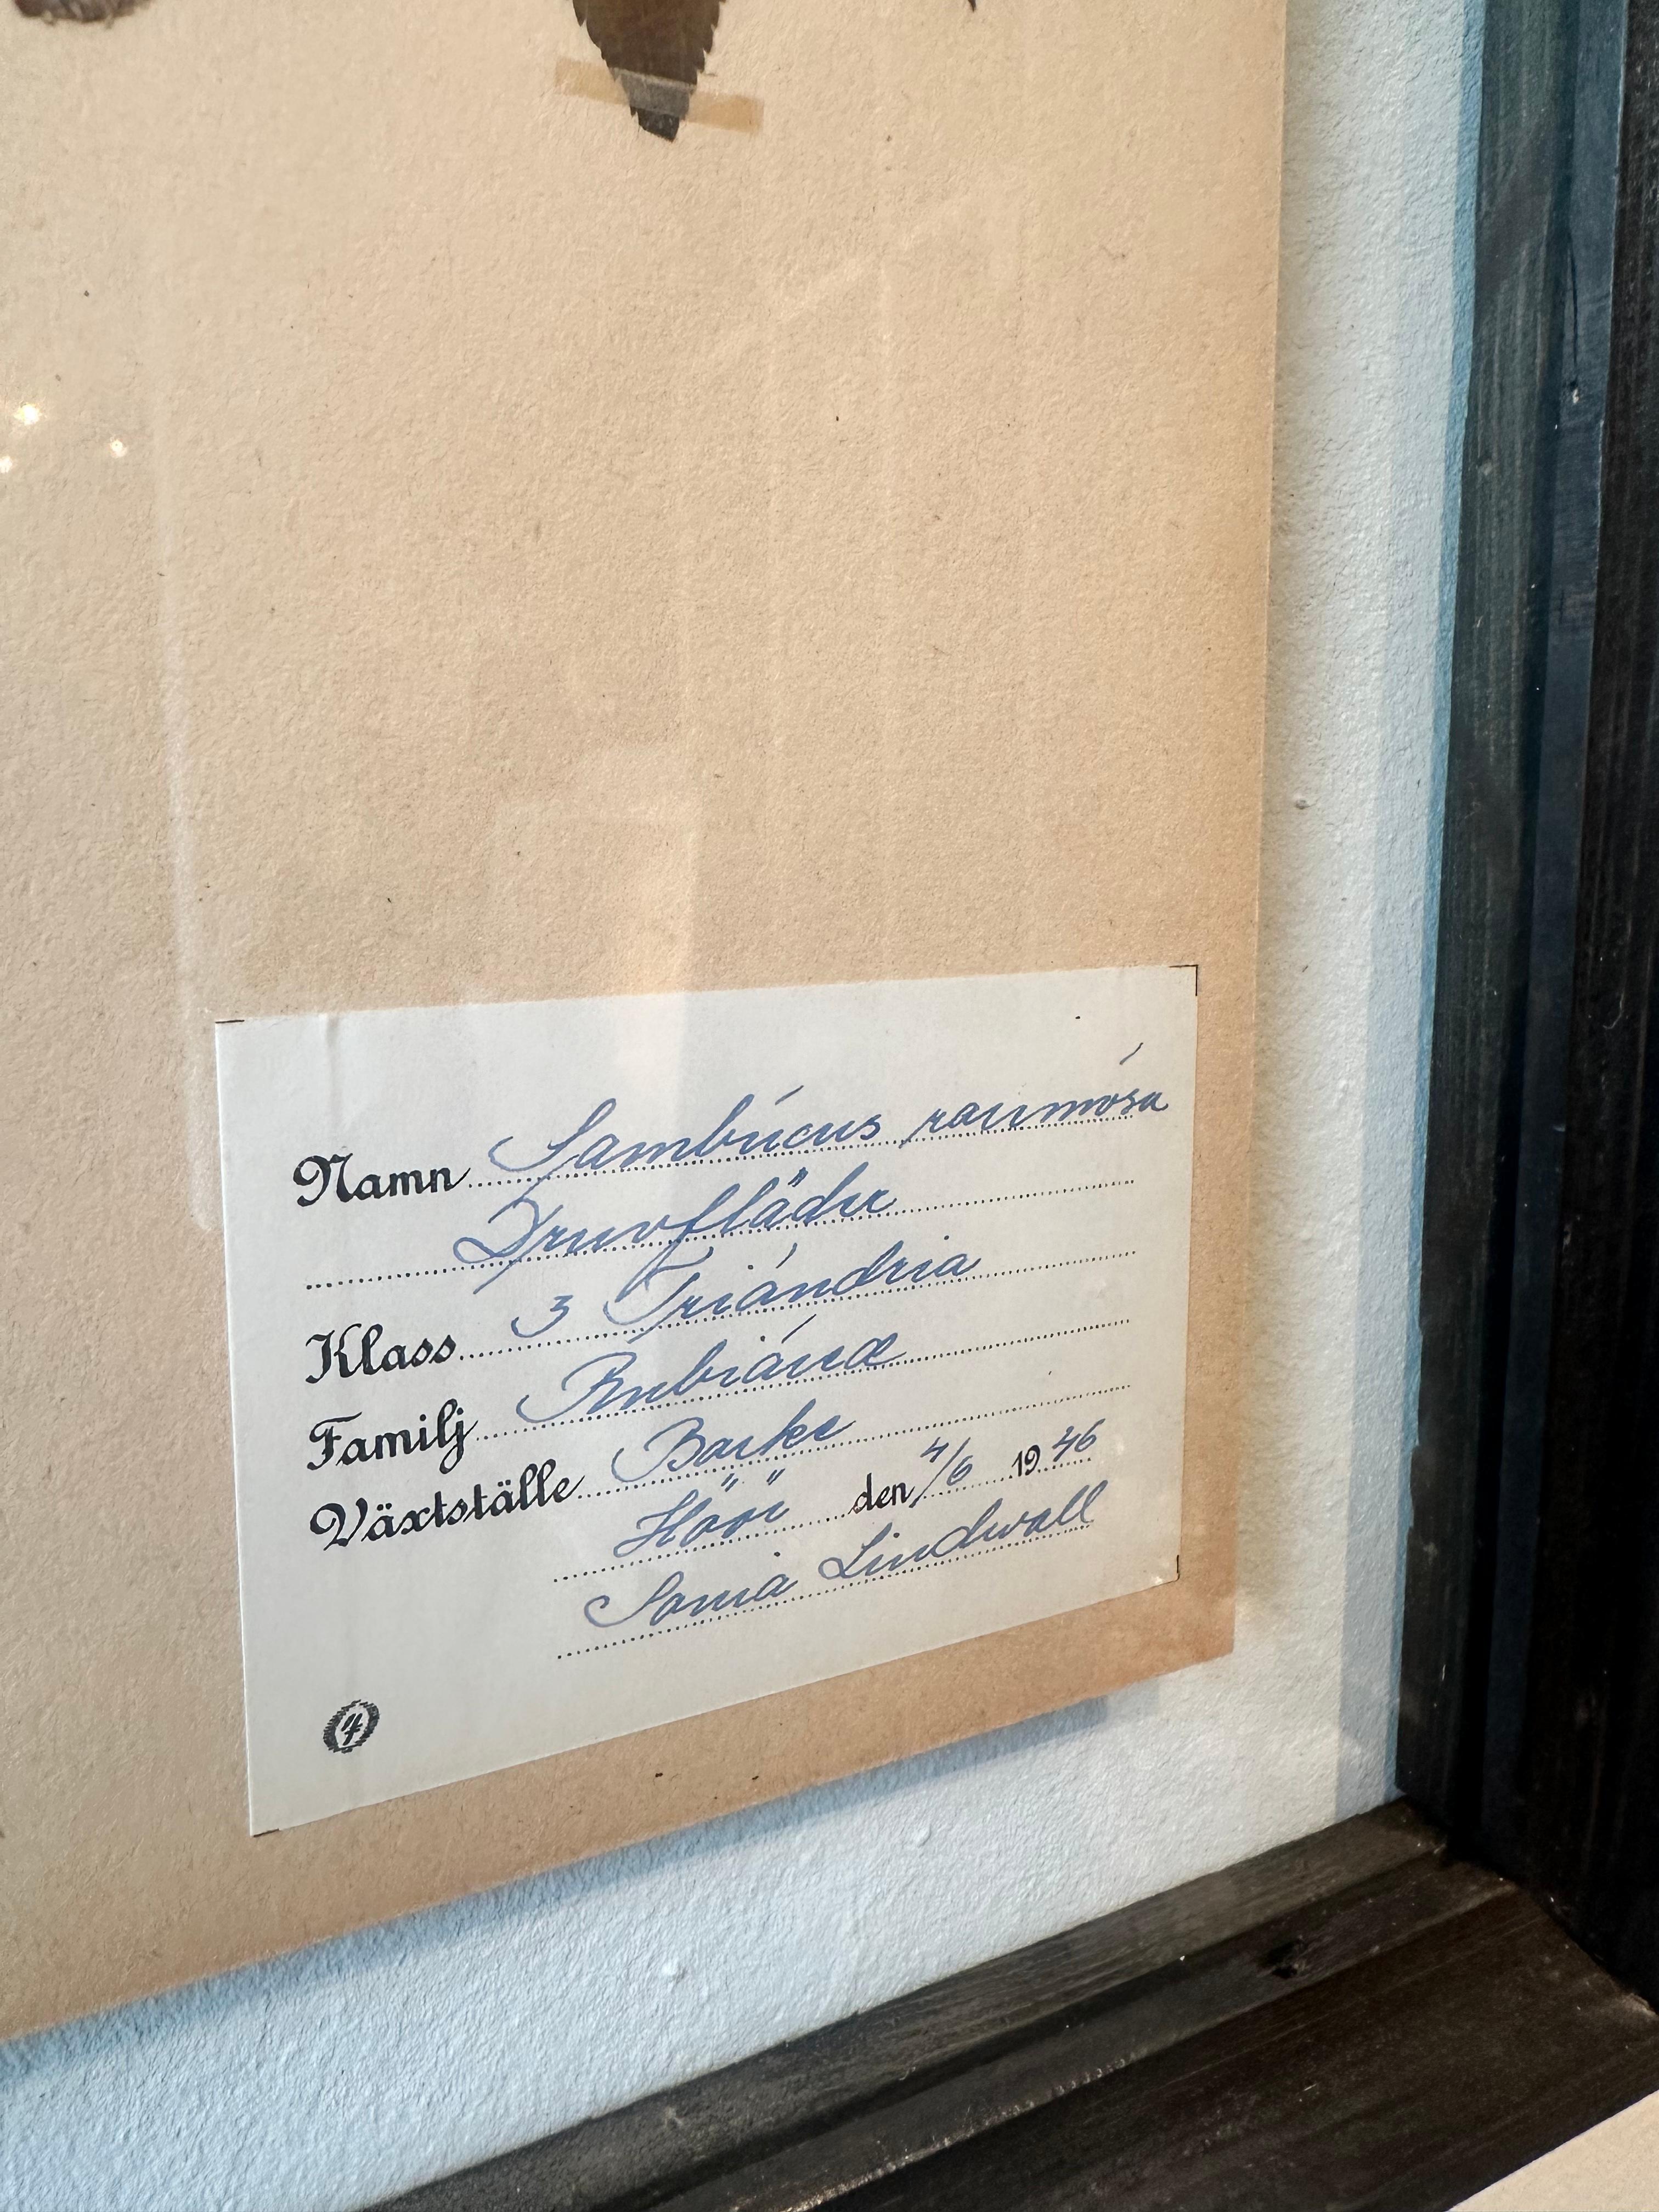 Namn Sambúcus racimósa
Druvfläder
Klass 3 Triándria
Familj Rubiánæ
Växtställe Backe
Höör den 4/6 1946
Sonia Lindwall
4